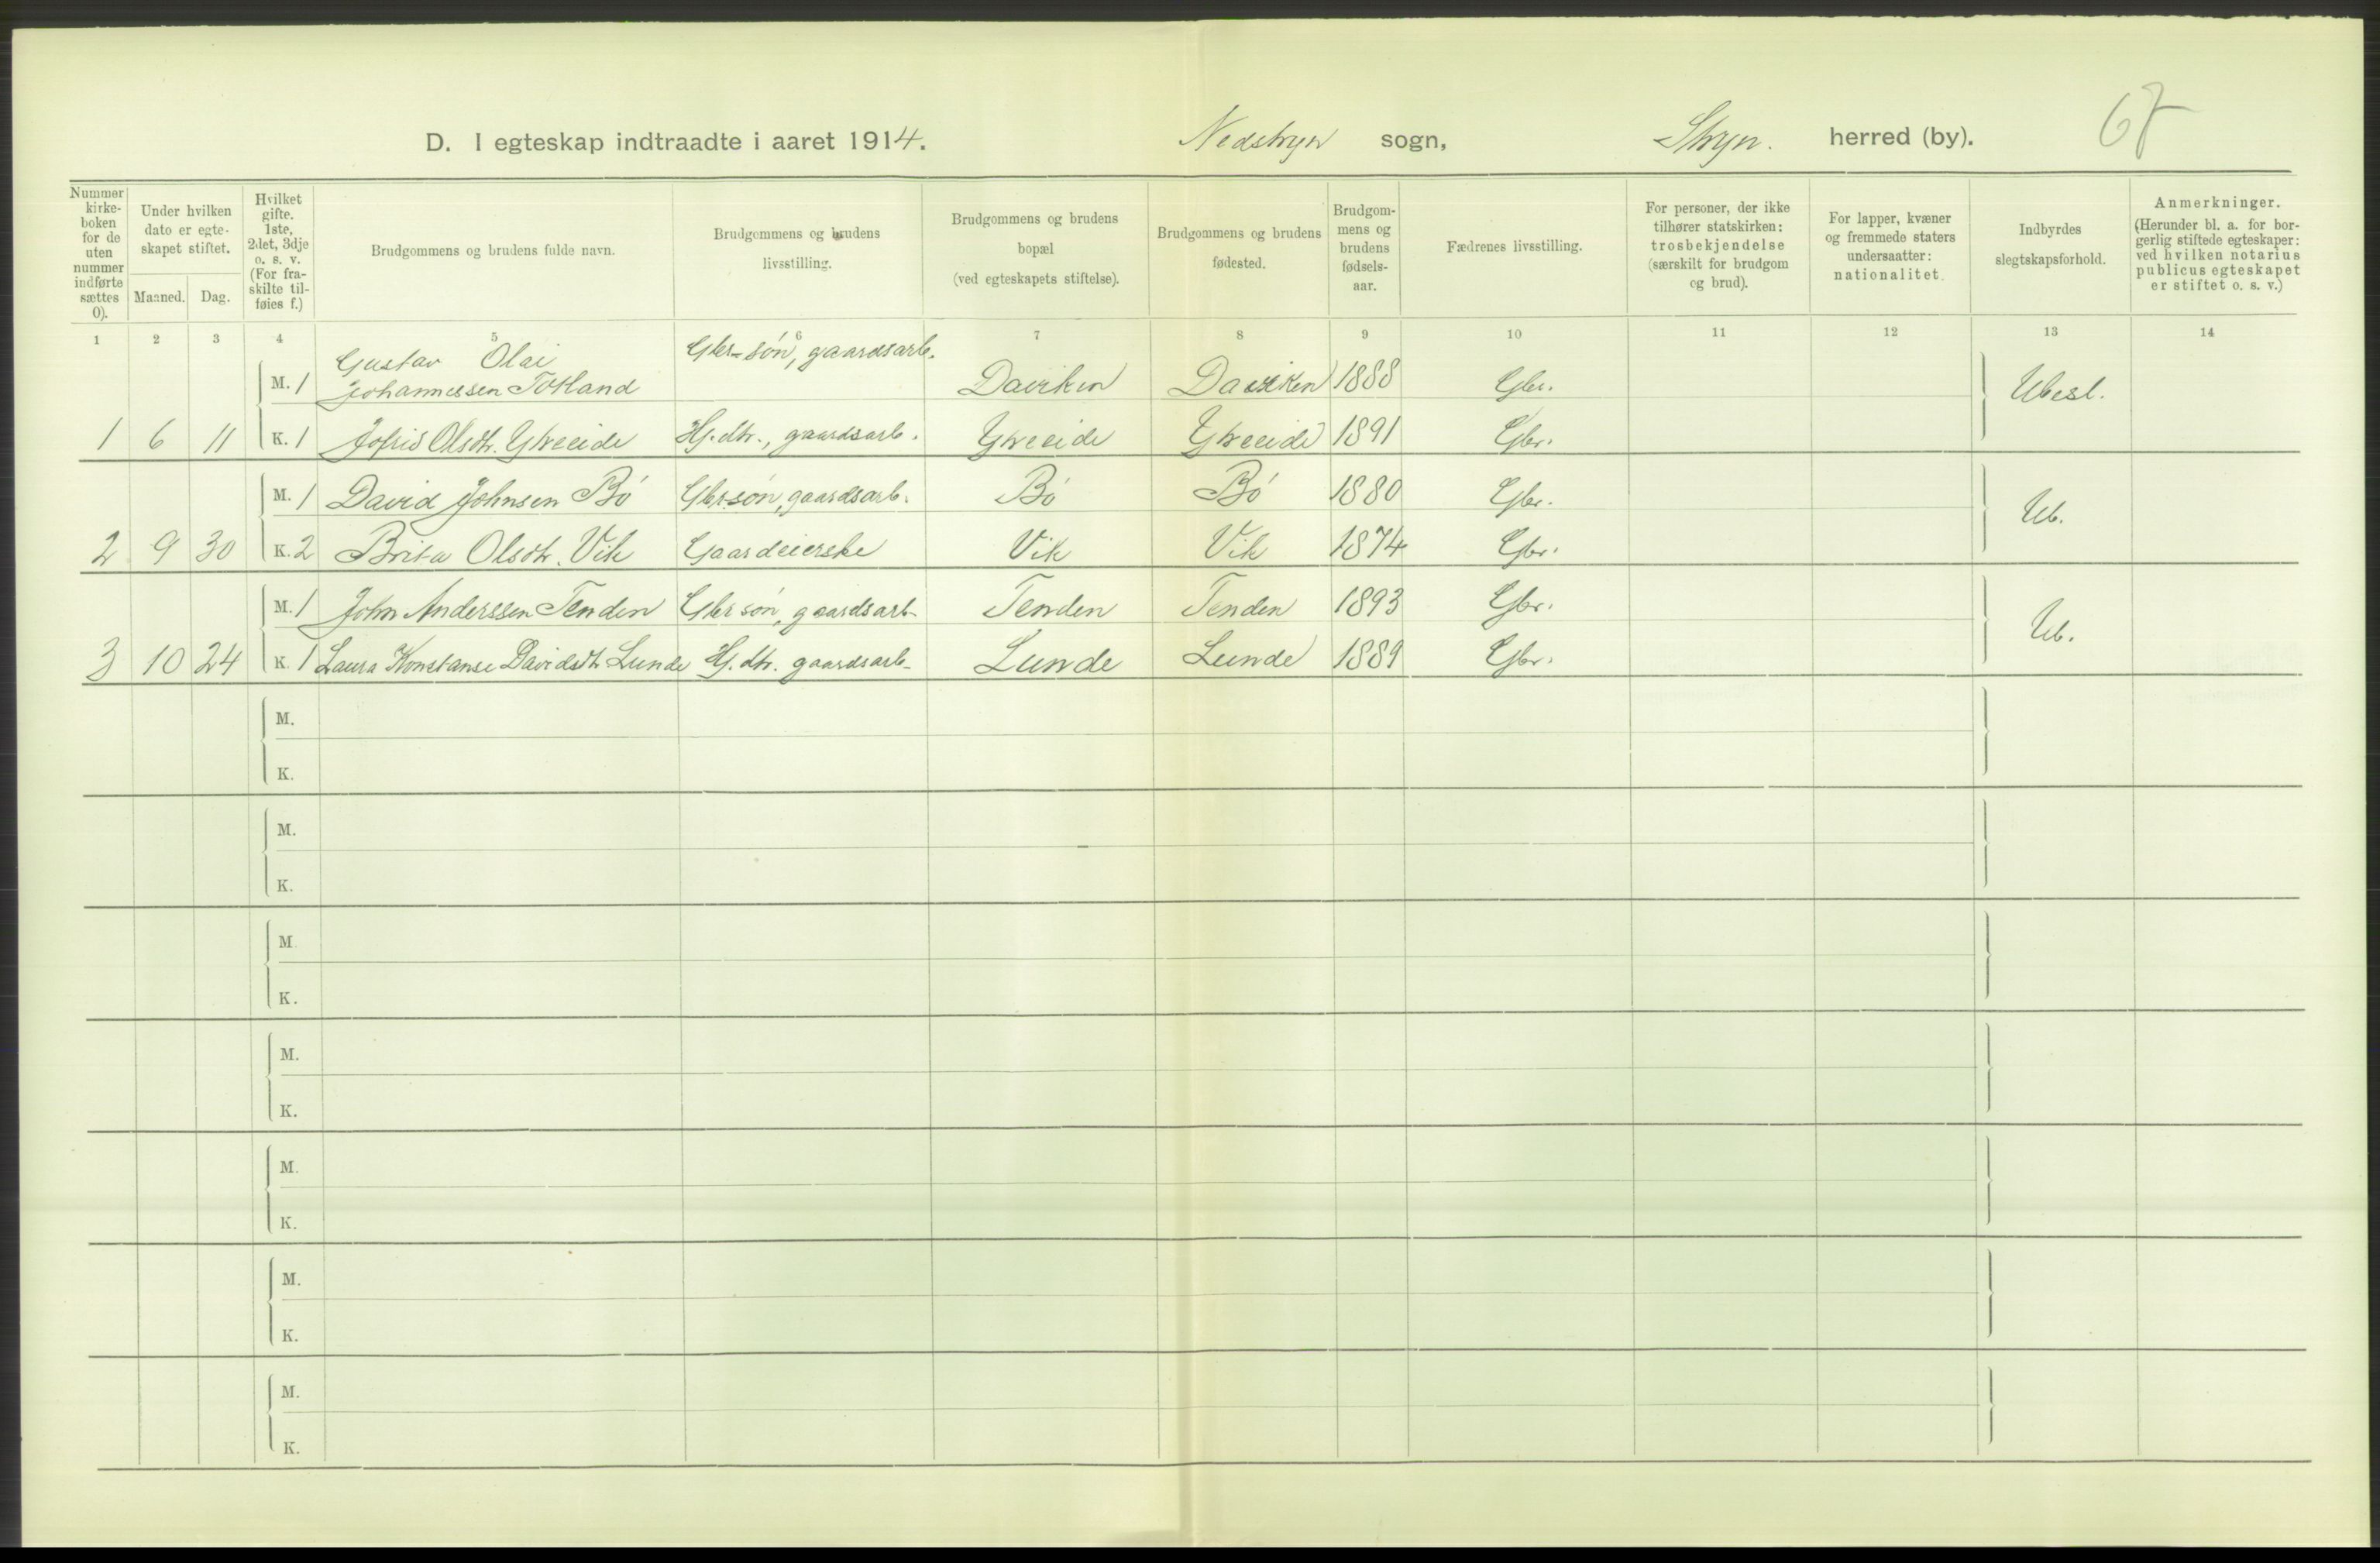 D. I egteskap indtraadte i aaret 1914. Nedstryn sogn, Stryn. herred (by).
Nummer kirkeboken for de uten nummer indførte sættes 0).
Under hvilken dato er egteskapet stiftet.
Maaned. Dag.
Hvilket gifte. 1ste, 2det, 3dje o. s. v. (For fraskilte tilføies f.)
Brudgommens og brudens fulde navn.
Brudgommens og brudens livsstilling.
Brudgommens og brudens bopæl (ved egteskapets stiftelse).
Brudgommens og brudens fødested.
Brudgommens og brudens fødselsaar.
Fædrenes livsstilling.
For personer, der ikke tilhører statskirken: trosbekjendelse (særskilt for brudgom og brud).
For lapper, kvæner og fremmede staters undersaatter: nationalitet.
Indbyrdes slegtskapsforhold.
Anmerkninger. (Herunder bl. a. for borgerlig stiftede egteskaper: ved hvilken notarius publicus egteskapet er stiftet o. s. v.)
1 2 3 4 5 6 7 8 9 10 11 12 13 14
M. 1 Gustav Olai Johannessen Totland Gbr-søn, gaardsarb. Daviken Daviken 1888 Gbr. Ubesl.
1 6 11 K. 1 Jofrid Olsdtr. Ytreeide Hj. dtr., gaardsarb. Ytreeide Ytreeide 1891 Gbr.
M. 1 David Johnsen Bö Gbrsøn, gaardsarb. Bö Bö 1880 Gbr. Ub.
2 9 30 K. 2 Brita Olsdtr. Vik Gaardeierske Vik Vik 1874 Gbr.
M. 1 John Anderssen Tenden Gbr søn, gaardsarb Tenden Tenden 1893 Gbr. Ub.
3 10 24 K. 1 Laura Konstanse Davidsdtr Lunde Hj. dtr. gaardsarb Lunde Lunde 1889 Gbr.
M.
K.
M.
K.
M.
K.
M.
K.
M.
K.
M.
K.
M.
K.